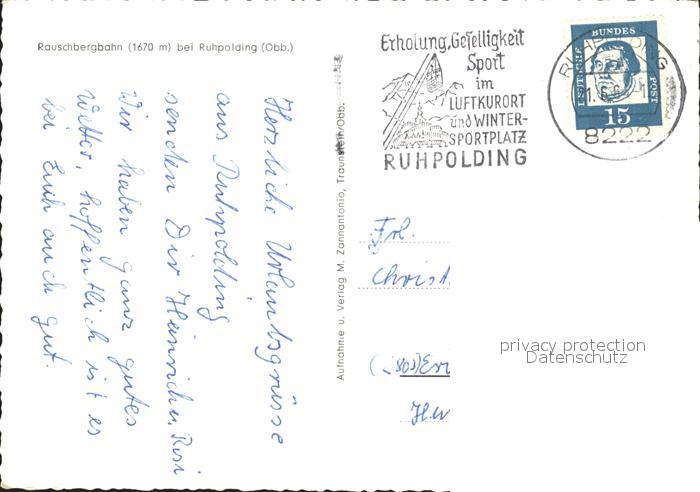 Rauschbergbahn (1670 m) bei Ruhpolding (Obb.)
Herzliche Urlaubsgrüsse
aus Ruhpolding
senden Dir Heinrich u. Rosi
Wir haben ganz gutes
Wetter, hoffentlich ist es
bei Euch auch gut.
Aufnahme u. Verlag M. Zannantonio, Traunstein/Obb.
Erholung, Geselligkeit
Sport
im
LUFTKURORT
und WINTER-
SPORTPLATZ
RUHPOLDING
DEUTSCHE BUNDES POST
15
RUHPOLDING
8222
Frl.
Christ
privacy protection
Datenschutz